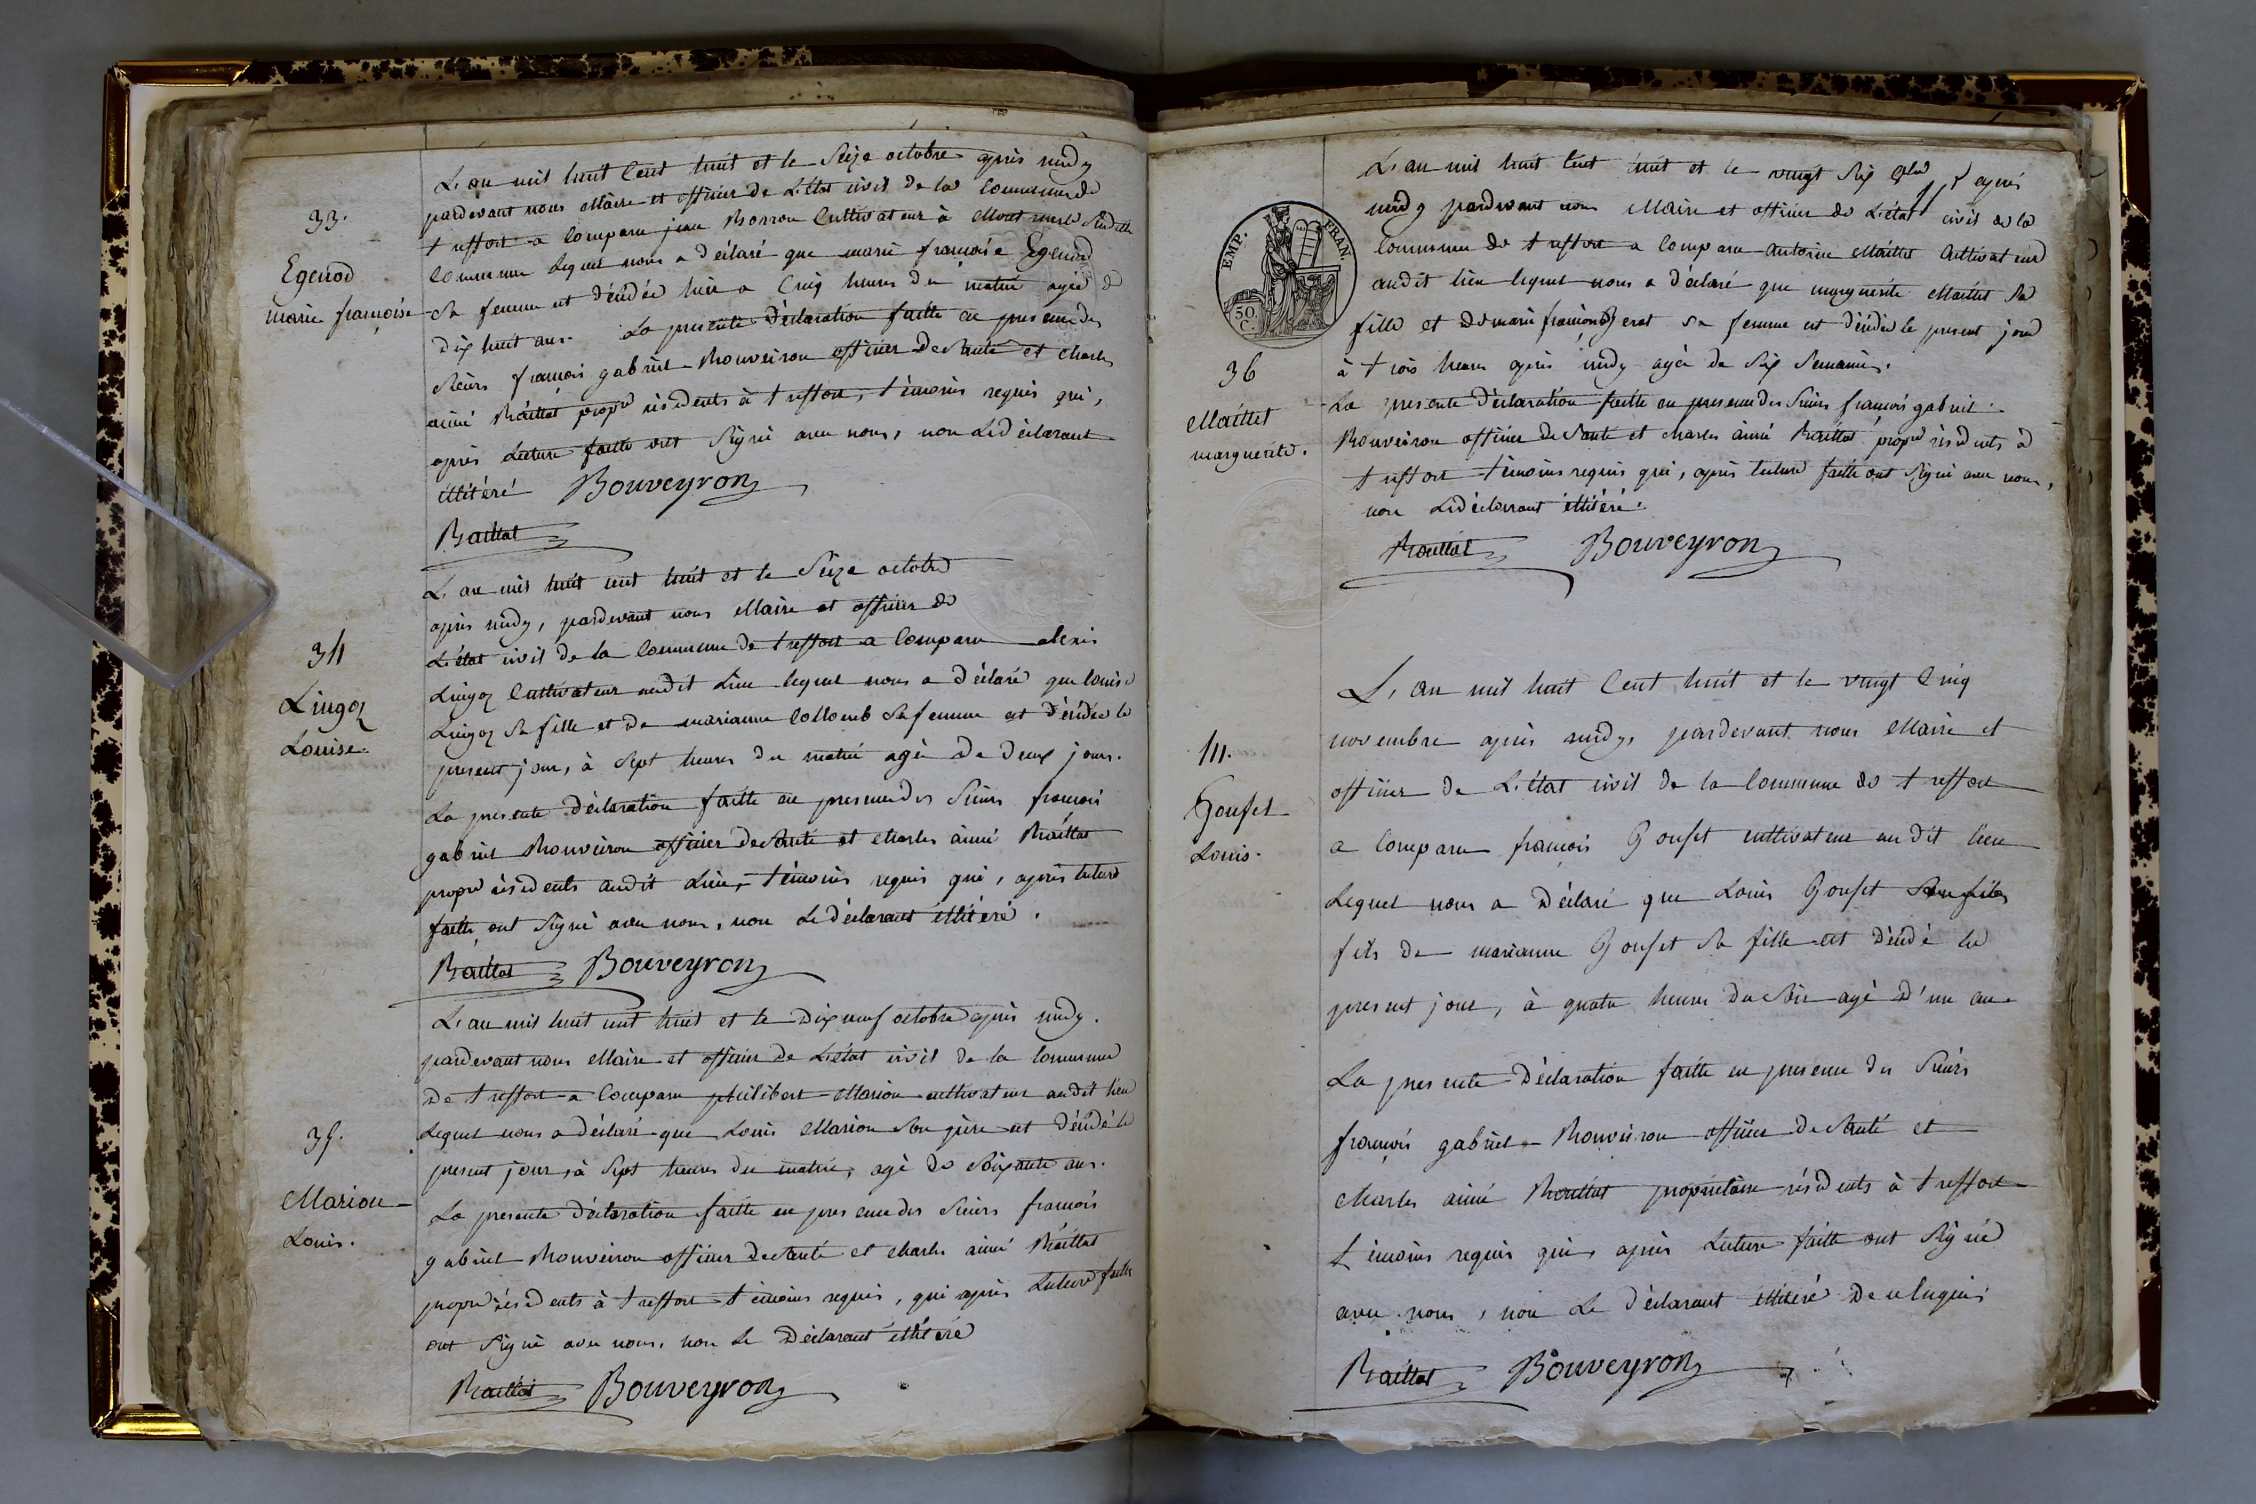 33.
Egenod
marie françoise
L'an mil huit Cent huit et le Seize octobre après midy
pardevant nous Maire et officier de L'état civil de la Commune de
treffort a Comparu jean Borron Cultivateur à Montmerle Susditte
Commune lequel nous a déclaré que marie françoise Egenod
Sa femme est décédée hier a Cinq heures du matin agée de
dix huit ans. La presente Déclaration faitte en presence des
Sieurs françois gabriel Bouveiron officier De Santé et charles
aimé Raillat propre résidents à treffort, témoins requis qui,
après Lecture faitte ont Signé avec nous, non Le déclarant
illitéré Bouveyron
Raillat
34
Lingoz
Louise.
L'an mil huit cent huit et le Seize octobre
après midy, pardevant nous Maire et officier de
L'état civil de la Commune de treffort a Comparu alexis
Lingoz Cultivateur audit Lieu lequel nous a déclaré que louise
Lingoz Sa fille et de marianne Collomb Sa femme est décédée le
present jour, à Sept heures du matin agée De deux jours.
La presente Déclaration faitte en presence des Sieurs françois
gabriel Bouveiron officier De Santé et charles aimé Raillat
propre résidents audit Lieu, témoins requis qui, après lecture
faitte ont Signé avec nous, non Le déclarant illitéré.
Raillat Bouveyron
35.
Marion
Louis.
L'an mil huit cent huit et le Dix neuf octobre après midy.
pardevant nous Maire et officier de L'état civil de la Commune
De treffort a Comparu philibert Marion cultivateur audit lieu
Lequel nous a déclaré que Louis Marion Son père est décédé le
present jour, à Sept heures du matin, agé de Soixante ans.
La presente déclaration faitte en presence des Sieurs françois
gabriel Bouveiron officier De Santé et charles aimé Raillat
propre résidents à treffort témoins requis, qui après Lecture faitte
ont Signé avec nous, non Le Déclarant illitéré
Raillat Bouveyron
EMP. FRAN.
50.
C.
36
Maillet
marguerite.
L'an mil huit Cent huit et le vingt Six après
midy pardevant nous Maire et officier de L'état civil de la
Commune de treffort a Comparu antoine Maillet Cultivateur
audit lieu lequel nous a déclaré que marguerite Maillet Sa
fille et De marie françoise Sa femme est décédée le present jour
à trois heures après midy agée de Six Semaines.
La presente déclaration faitte en presence des Sieurs françois gabriel
Bouveiron officier De Santé et charles aimé Raillat propre résidents à
treffort témoins requis qui, après lecture faitte ont Signé avec nous,
non Le déclarant illitéré.
Raillat Bouveyron
Gouset
Louis.
L'an mil huit Cent huit et le vingt Cinq
novembre après midy, pardevant nous Maire et
officier de L'état civil de la Commune de treffort
a Comparu françois Gouset cultivateur audit lieu
Lequel nous a Déclaré que Louis Gouset
fils de marianne Gouset Sa fille est décédé le
present jour, à quatre heures du Soir agé d'un an.
La presente Déclaration faitte en presence des Sieurs
françois gabriel Bouveiron officier De Santé et
charles aimé Raillat propriétaire résidents à treffort
témoins requis qui, après Lecture faitte ont Signé
avec nous, non Le déclarant illitéré De ce Enquis
Raillat Bouveyron